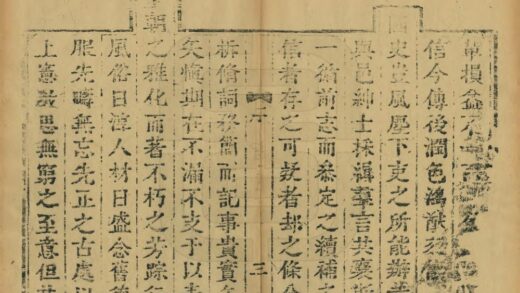 革損益不
信今傳後潤色鴻猷
史豈風塵下吏之所能辦
與邑紳士採輯羣言共襄
一前志而叅定之續補之
信者存之可疑者却之條
三
析脩詞務簡而記事貴實
矣期在不漏不支于以
朝之雅化而著不朽之芳踪
風俗日淳人材日盛念舊德
服先疇無忘先正之古處以
上憲教思無窮之至意但